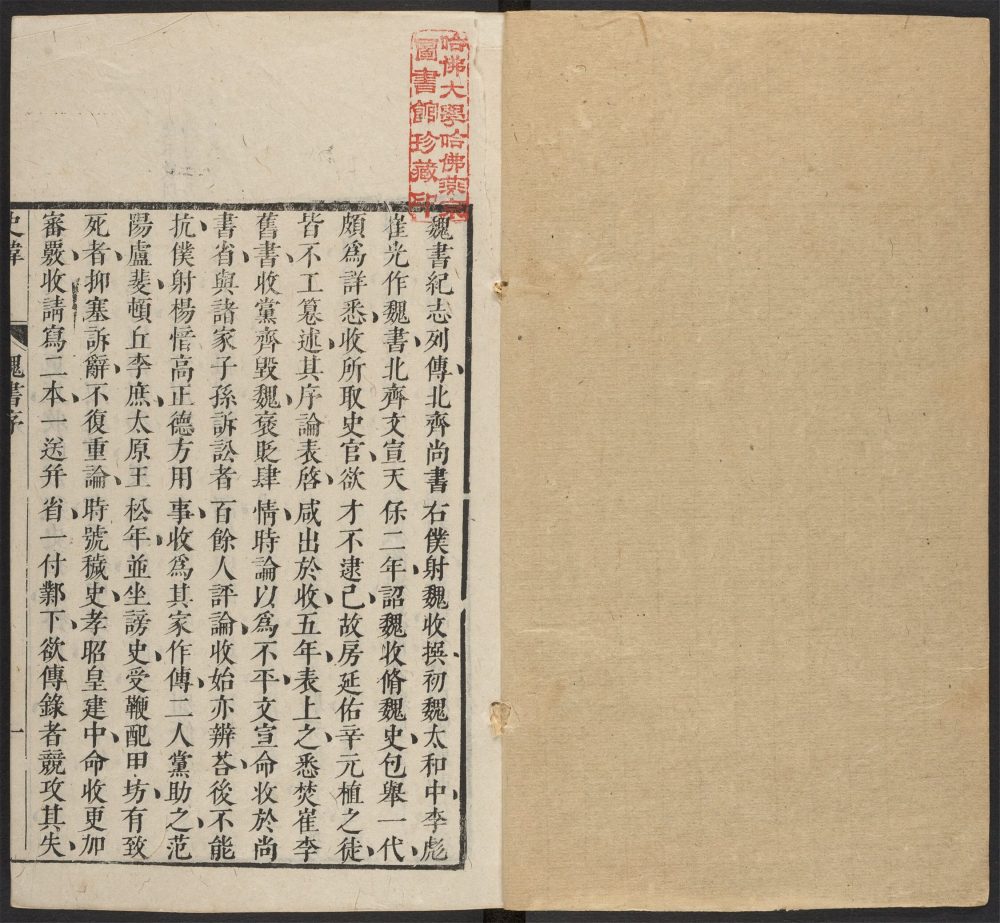 哈佛大學哈佛燕京
圖書館珍藏印
魏書紀志列傳北齊尚書右僕射魏收撰初魏太和中李彪
崔光作魏書北齊文宣天保二年詔魏收脩魏史包舉一代
頗爲詳悉收所取史官欲才不逮己故房延佑辛元植之徒
皆不工纂述其序論表啓咸出於收五年表上之悉焚崔李
舊書收黨齊毀魏褒貶肆情時論以爲不平文宣命收於尚
書省與諸家子孫訴訟者百餘人評論收始亦辨荅後不能
抗僕射楊愔高正德方用事收爲其家作傳二人黨助之范
陽盧斐頓丘李庶太原王松年並坐謗史受鞭配甲坊有致
死者抑塞訴辭不復重論時號穢史孝昭皇建中命收更加
審覈收請寫二本一送幷省一付鄴下欲傳錄者競攻其失
史緯 魏書序 一